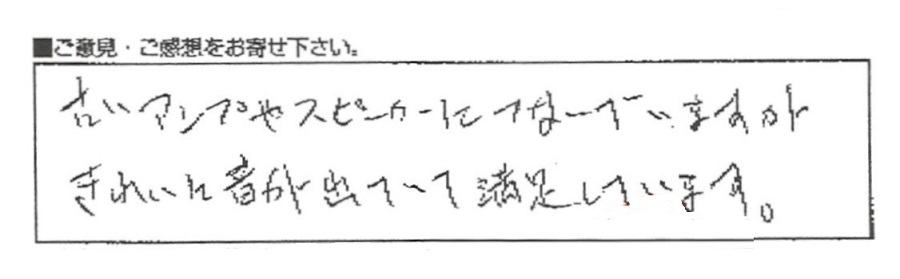 ■ご意見・ご感想をお寄せ下さい。
古いアンプやスピーカーにつないでいますが
きれいに音が出ていて満足しています。